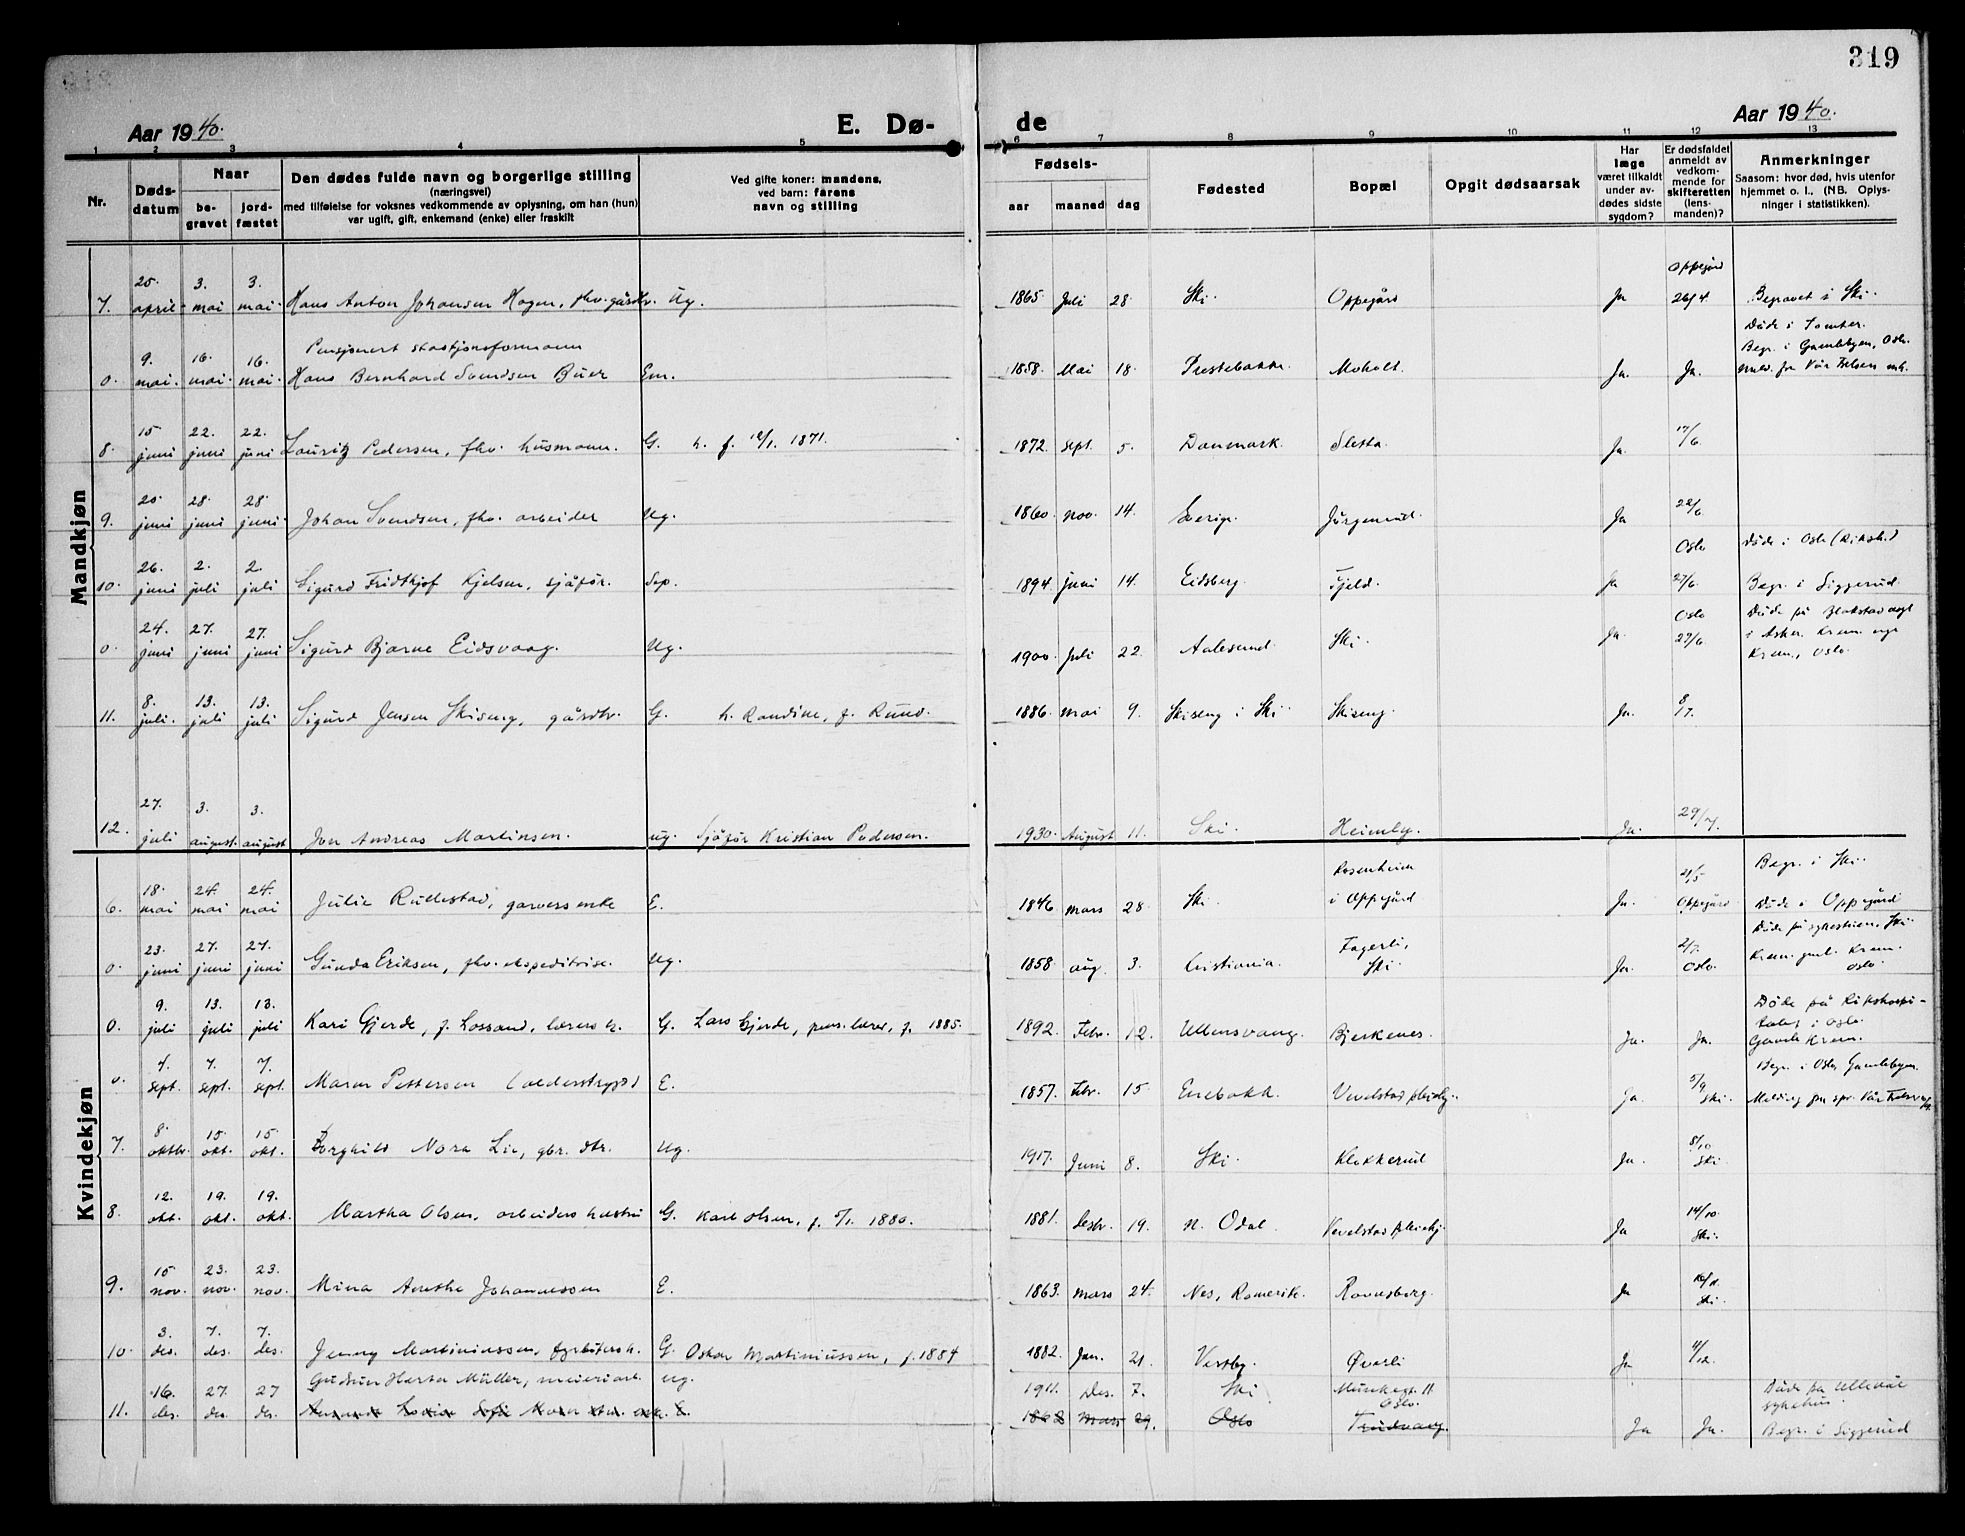 319
Aar 1940.
E. Dø-
de
Aar 1940.
1 2 3 4 5 6 7 8 9 10 11 12 13
Nr.
Døds-
datum
Naar
be-
gravet
jord-
fæstet
Den dødes fulde navn og borgerlige stilling
(næringsvei)
med tilføielse for voksnes vedkommende av oplysning, om han (hun)
var ugift, gift, enkemand (enke) eller fraskilt
Ved gifte koner: mandens,
ved barn: farens
navn og stilling
Fødsels-
aar maaned dag
Fødested
Bopæl
Opgit dødsaarsak
Har
læge
været tilkaldt
under av-
dødes sidste
sygdom?
Er dødsfaldet
anmeldt av
vedkom-
mende for
skifteretten
(lens-
manden)?
Anmerkninger
Saasom: hvor død, hvis utenfor
hjemmet o. l., (NB. Oplys-
ninger i statistikken).
Mandkjøn
25. 3. 3. Oppegård
7. april mai mai Hans Anton Johansen Hagen, fhv. gårdbr. Ug. 1865 Juli 28 Ski Oppegård Ja 26/4 Begravet i Ski
Pensjonert stasjonsformann Døde i Tomter.
9. 16. 16. Begr. i Gamlebyen, Oslo.
0. mai. mai. mai. Hans Bernhard Svendsen Buer Em. 1858 Mai 18 Prestebakke Moholt. Ja. Ja.
15 22. 22. 17/6
8. juni juni juni Lauritz Pedersen, fhv. husmann. G. h. f. 12/1. 1871. 1872. sept. 5. Danmark. Sletta. Ja.
20 28 28 22/6
9. juni juni juni Johan Svendsen, fhv. arbeider Ug. 1860 nov. 14. Sverige. Jørgenrud. Ja
26. 2. 2. Oslo Døde i Oslo (Riksh.)
10. juni juli juli Sigurd Fridtkjof Kjelsen, sjåfør. Sep. 1894. juni 14. Eidsberg. Fjeld. Ja 27/6 Begr. i Siggerud
24. 27. 27. Oslo Døde på Blakstad asyl
0. juni juni juni Sigurd Bjarne Eidsvaag. Ug. 1900. Juli 22. Aalesund. Ski Ja. 27/6 i Asker. Krem. nye
Krem., Oslo.
8. 13. 13. 8
11. juli. juli juli Sigurd Jensen Skiseng, gårdbr. G. h. Randine, f. Rund. 1886. mai 9. Skiseng i Ski Skiseng. Ja. /7.
27. 3. 3. 29/7.
12. juli august. august Jon Andreas Martinsen. ug. Sjåfør Kristian Pedersen. 1930. August 11. Ski. Heimly. Ja.
Kvindekjøn
18. 24. 24. Rosenheim 21/5 Begr. i Ski
6. mai mai mai Julie Rullestad, garvers enke E. 1846 mars 28 Ski. i Oppegård Ja. Oppegård Døde i Oppegård
23. 27. 27. Fagerli, 2/7. Døde på sykestuen, Ski
0. juni juni juni Gunda Eriksen, fhv. ekspeditrise. Ug. 1858. aug. 3. Cristiania. Ski Ja. Oslo. Krem. gml. Krem.
Oslo.
9. 13. 13. Døde på Rikshospi-
0. juli juli juli Kari Gjerde, f. Lossand, lærers h. G. Lars Gjerde, pens. lærer, f. 1885. 1892. Febr. 12. Ullensvang. Bjerkenes. Ja. Ja. talet i Oslo.
Gamle Krem.
4. 7. 7. 5/9 Begr. i Oslo Gamlebyen.
0. sept. sept. sept. Maren Pettersen (alderstrygd) E. 1857. Febr. 15 Enebakk. Vevelstad pleiehj. Ja. Ski.
8. 15. 15. 8/10
7. oktbr. okt. okt. Borghild Nora Lie, gbr. dtr. Ug. 1917. Juni 8. Ski. Klokkerud Ja. Ski
12. 19. 19. 14/10.
8. okt. okt. okt. Martha Olsen, arbeiders hustru G. Karl Olsen, f. 5/1. 1880. 1881. desbr. 19. N. Odal. Vevelstad pleiehj Ja Ski.
15 23. 23. 16/11.
9. nov. nov. nov. Mina Anethe Johannessen E. 1863. mars 24. Nes, Romerik. Ravnsberg. Ja Ski.
3. 7. 7. 4/12.
10. des. des. des. Jenny Martiniussen, fyrbøters h. G. Oskar Martiniussen, f. 1884 1882. Jan. 21. Vestby. Øverli Ja
Gudrun Herta Müller, meieriarb. ug. 1911. Des. 7. Ski Munkegt. 11 Døde på Ullevål
16. 27. 27 Oslo. sykehus.
11. des. des. des. Amanda Lovise Sofie E. 1862 Mars 29. Oslo Trudvang. Ja Ja. Begr. i Siggerud